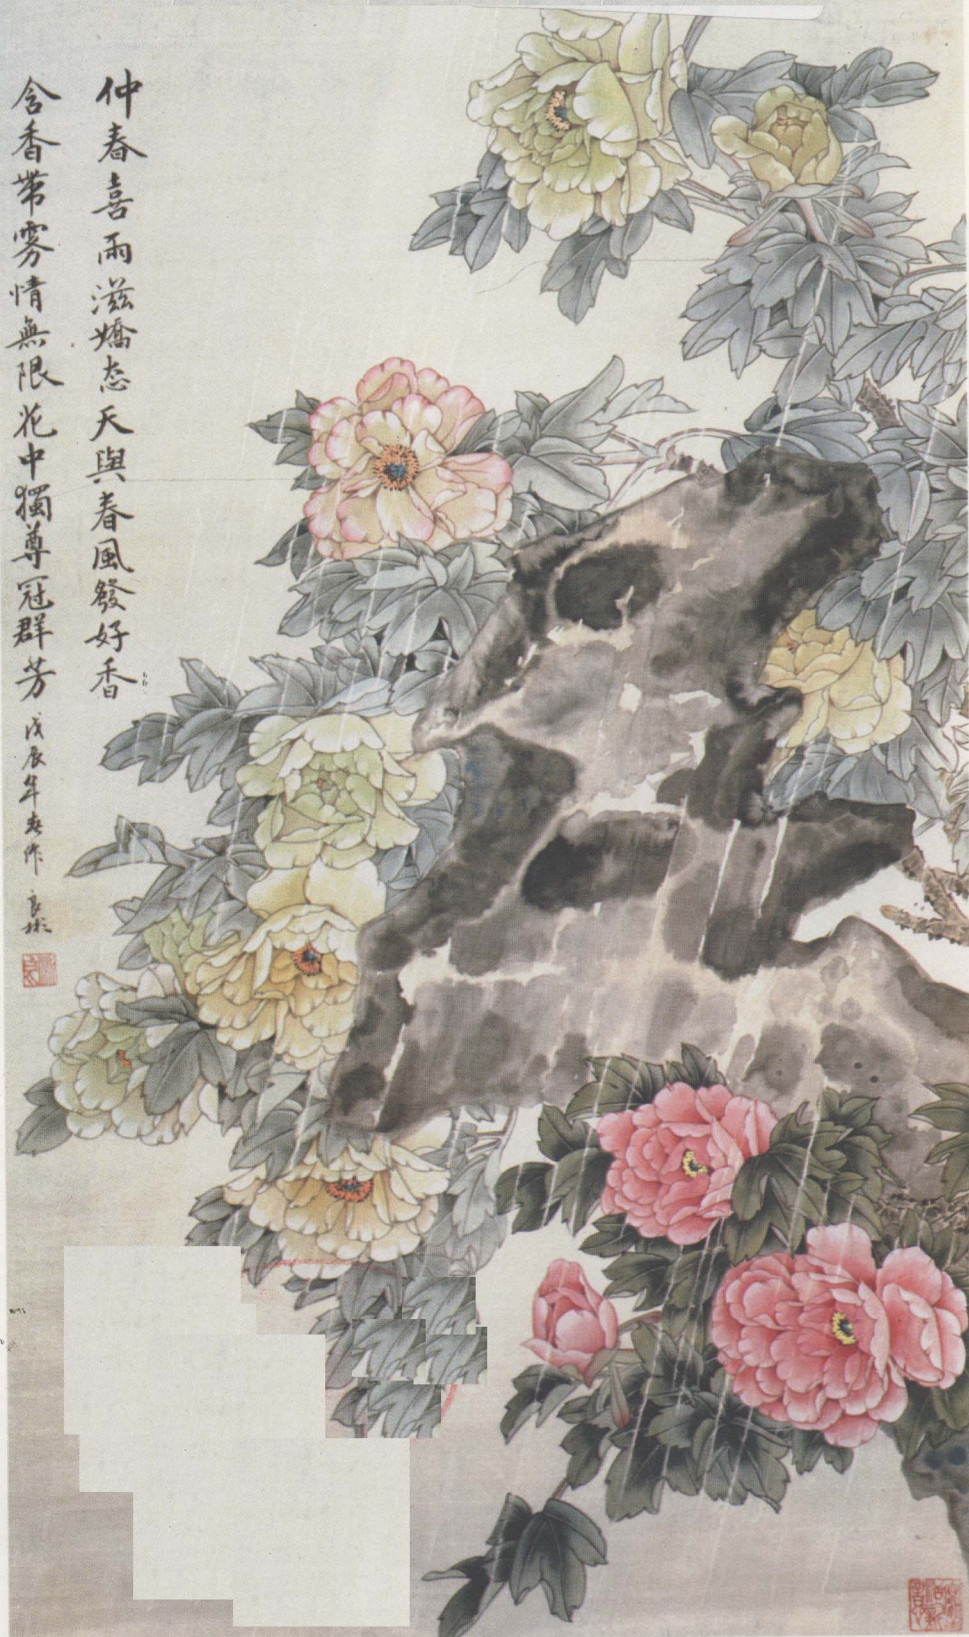 仲春喜雨滋嬌态天與春風發好香
含香帶雾情無限花中獨尊冠群芳
戊辰年春作 良彬